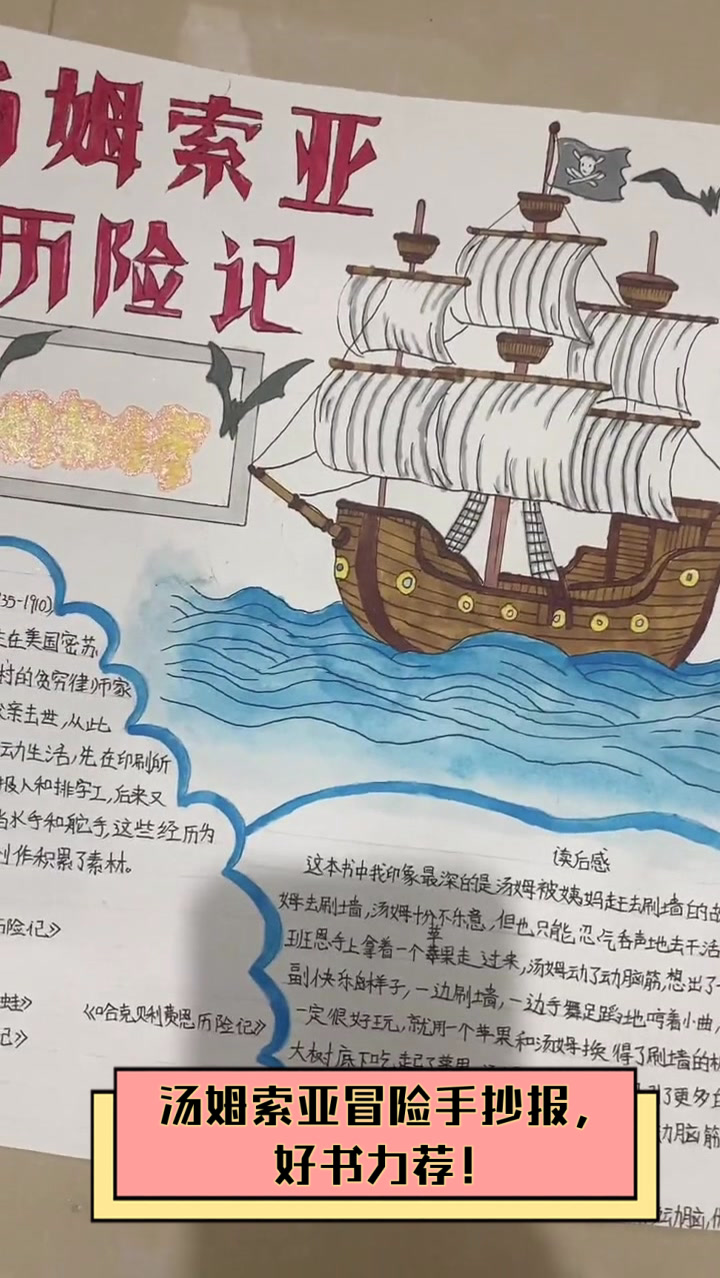 汤姆索亚
历险记
35-1910)
在美国密苏
村的贫穷律师家
父亲去世,从此
动生活,先在印刷所
报人和排字工,后来又
当水手和舵手,这些经历为
创作积累了素材。
历险记》
蛙》
记》
《哈克贝利费恩历险记》
读后感
这本书中我印象最深的是汤姆被姨妈赶去刷墙的故
姆去刷墙,汤姆十分不乐意,但也只能忍气吞声地去干活
班恩手上拿着一个苹果走过来,汤姆动了动脑筋,想出了一
副快乐的样子,一边刷墙,一边手舞足蹈地哼着小曲,
一定很好玩,就用一个苹果和汤姆换得了刷墙的机
大树底下吃起了苹果
了更多的
动脑筋
动脑,
汤姆索亚冒险手抄报,
好书力荐!